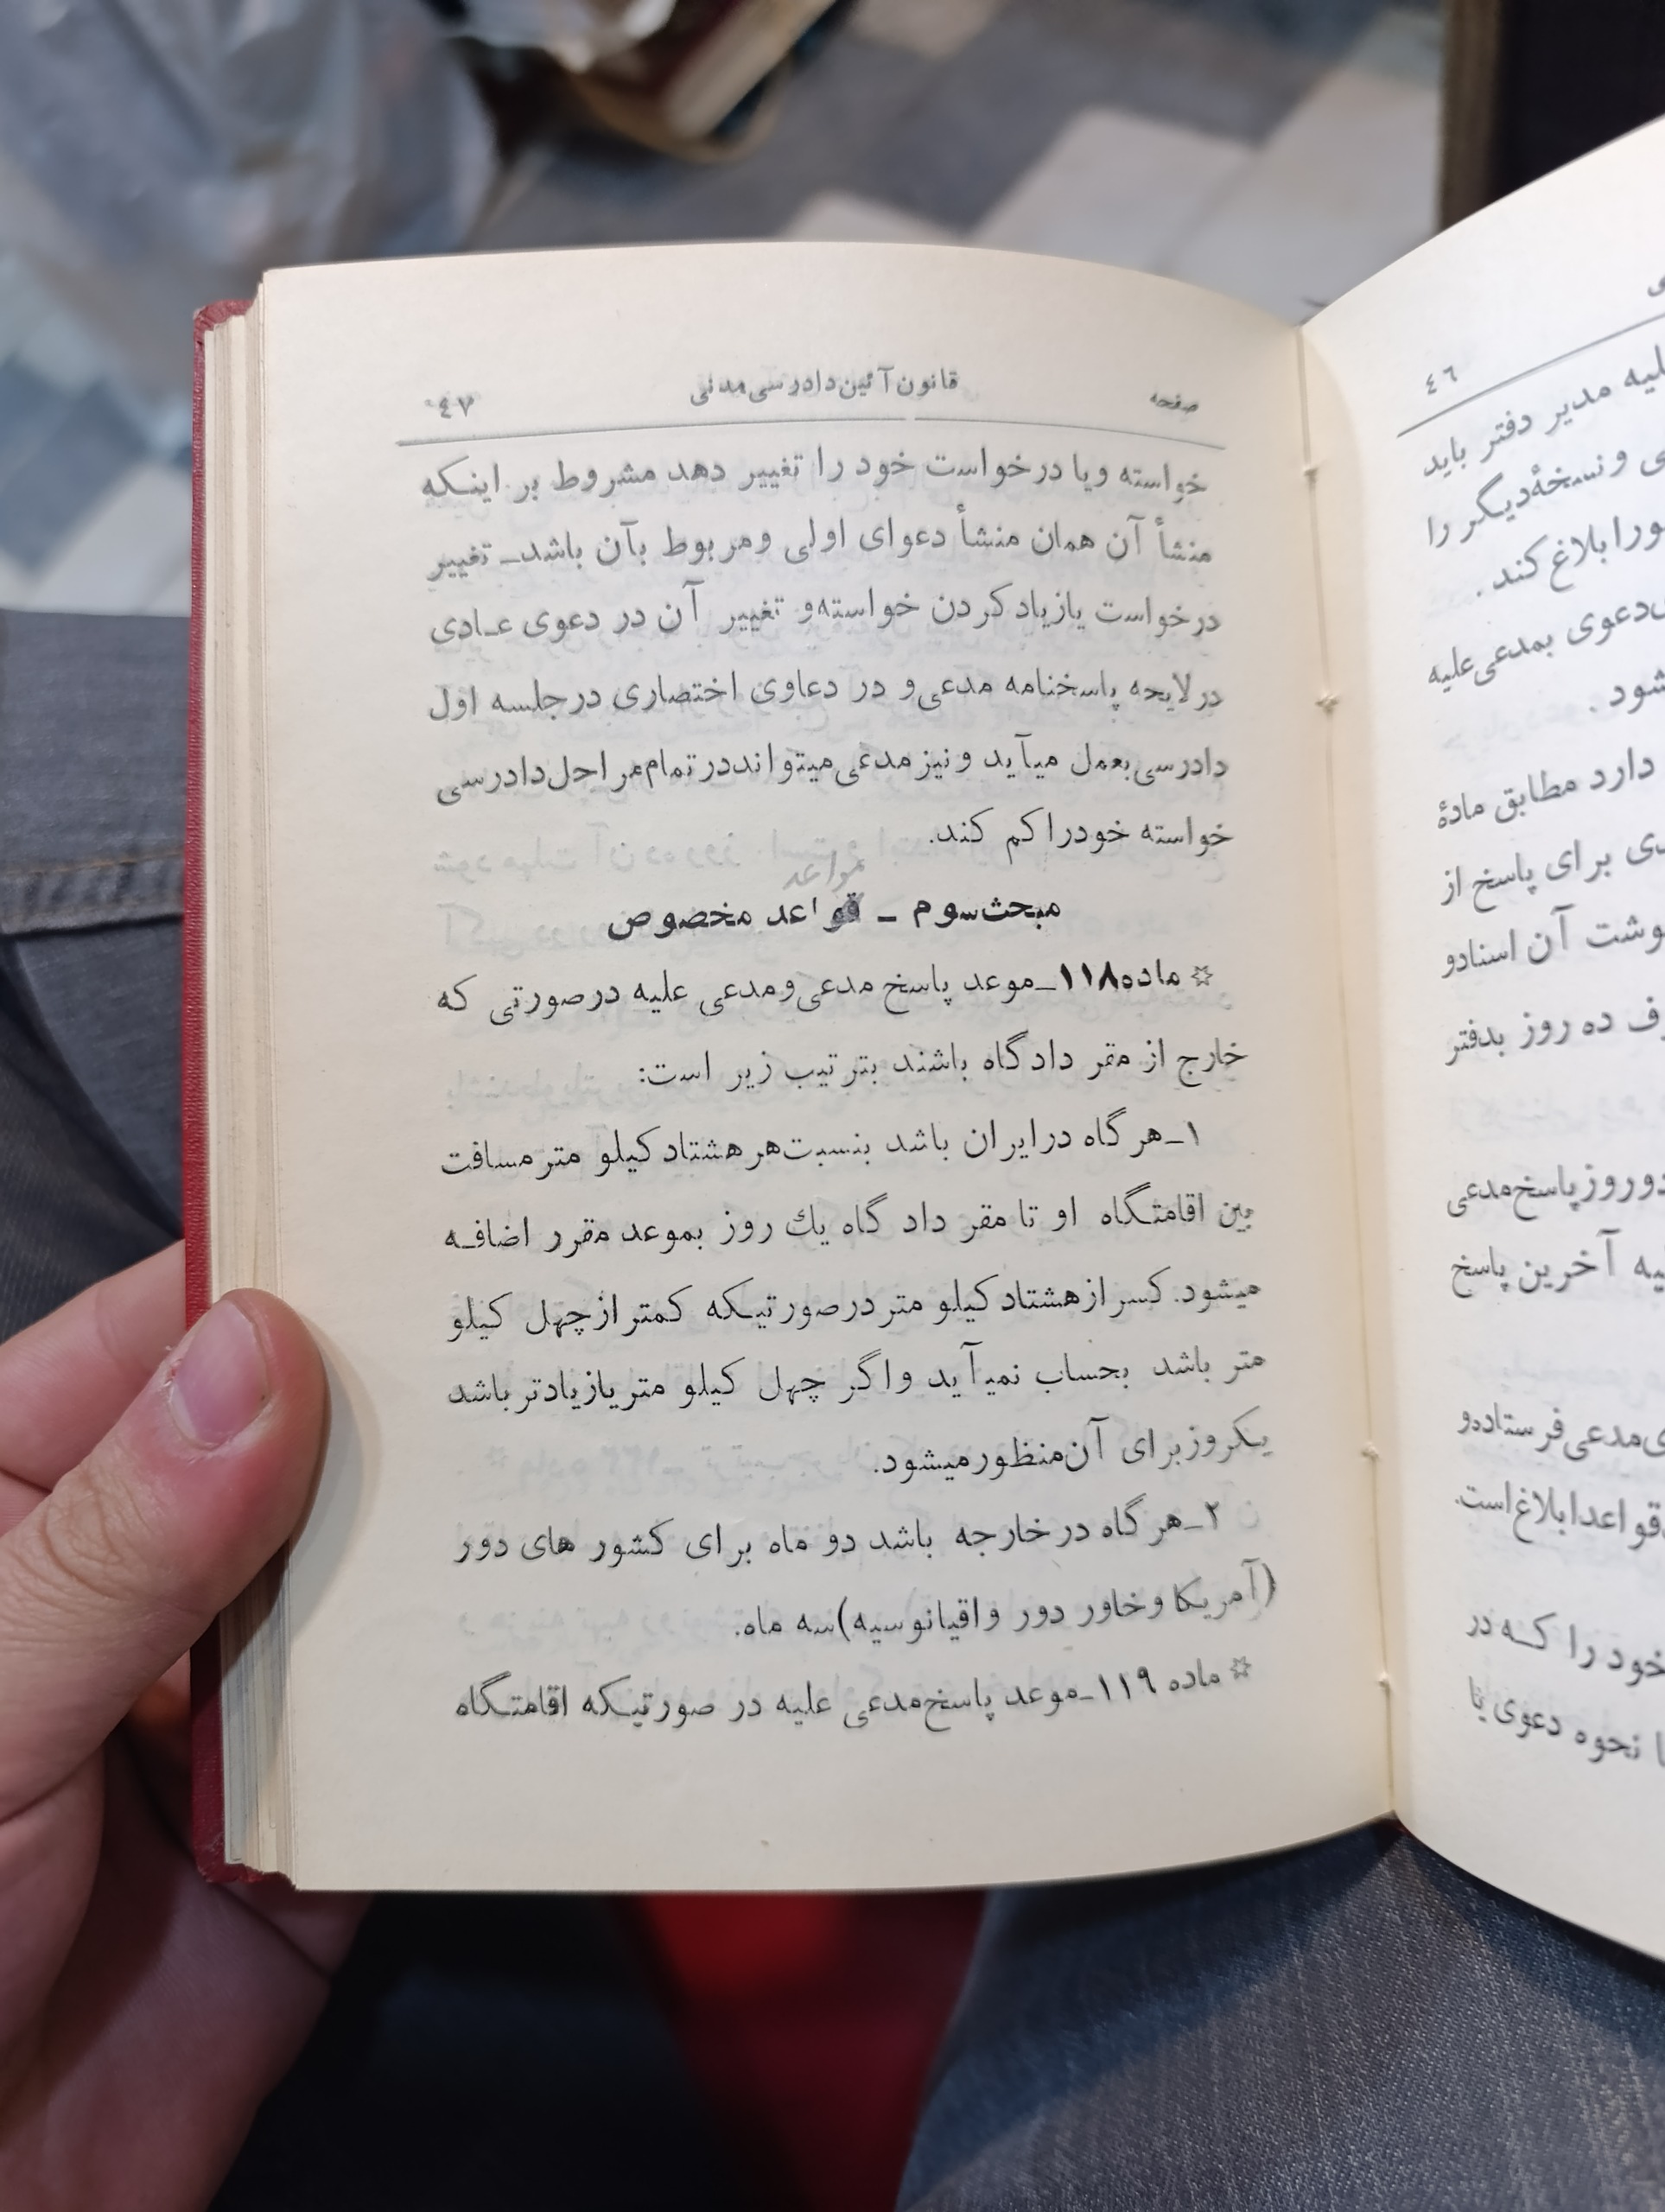 صفحه قانون آئین دادرسی مدنی ٤٧
خواسته ویا درخواست خود را تغییر دهد مشروط بر اینکه
منشأ آن همان منشأ دعوای اولی ومربوط بآن باشد_ تغییر
درخواست یازیاد کردن خواسته و تغییر آن در دعوی عادی
درلایحه پاسخنامه مدعی و در دعاوی اختصاری درجلسه اول
دادرسی بعمل میآید ونیز مدعی میتواند در تمام مراحل دادرسی
خواسته خودرا کم کند.
مواعد
مبحث سوم _ قواعد مخصوص
☆ ماده ۱۱۸_موعد پاسخ مدعی ومدعی علیه درصورتی که
خارج از مقر دادگاه باشند بترتیب زیر است:
۱_هرگاه درایران باشد بنسبت هر هشتاد کیلو متر مسافت
بین اقامتگاه او تا مقر داد گاه یك روز بموعد مقرر اضافه
میشود. کسر ازهشتاد کیلو متر درصورتیکه کمتر ازچهل کیلو
متر باشد بحساب نمیآید واگر چهل کیلو متر یازیادتر باشد
یکروز برای آن منظور میشود.
۲_هرگاه درخارجه باشد دو ماه برای کشور های دور
(آمریکا وخاور دور واقیانوسیه)سه ماه.
☆ ماده ۱۱۹_موعد پاسخ مدعی علیه در صورتیکه اقامتگاه
٤٦
مدیر دفتر باید
ونسخهٔ دیگر را
ابلاغ کند.
دعوی بمدعی علیه
شود.
دارد مطابق مادهٔ
برای پاسخ از
آن اسنادو
ده روز بدفتر
دوروز پاسخ مدعی
آخرین پاسخ
مدعی فرستاده و
قواعد ابلاغ است.
خود را که در
نحوه دعوی یا